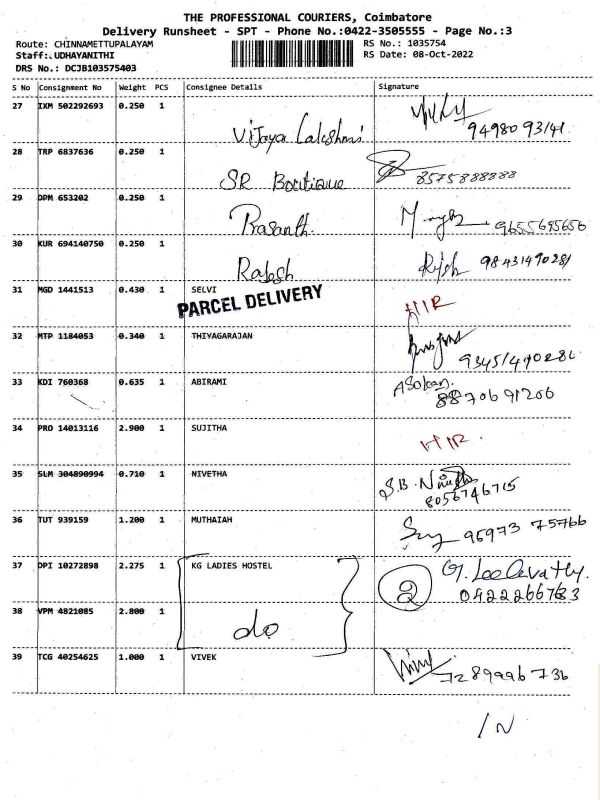 THE PROFESSIONAL COURIERS, Coimbatore
Delivery Runsheet - SPT - Phone No.:0422-3505555 - Page No.:3
Route: CHINNAMETTUPALAYAM
RS No.: 1035754
Staff: UDHAYANITHI
RS Date: 08-Oct-2022
DRS No.: DCJB103575403
S No Consignment No Weight PCS Consignee Details Signature
27 IXM 502292693 0.250 1 Vijaya Lakshmi 94980 93141
28 TRP 6837636 0.250 1 SR Boutique 8575888888
29 DPM 653202 0.250 1 Prasanth 9655695656
30 KUR 694140750 0.250 1 Rajesh Rajesh 98431490281
31 MGD 1441513 0.430 1 SELVI HIR
PARCEL DELIVERY
32 MTP 1184053 0.340 1 THIYAGARAJAN
33 KDI 760368 0.635 1 ABIRAMI Asokan. 8870691206
34 PRO 14013116 2.900 1 SUJITHA HIR.
35 SLM 304890994 0.710 1 NIVETHA S.B. 8056746715
36 TUT 939159 1.200 1 MUTHAIAH 95973 75766
37 DPI 10272898 2.275 1 KG LADIES HOSTEL 2
38 VPM 4821085 2.800 1 do
39 TCG 40254625 1.000 1 VIVEK
IN